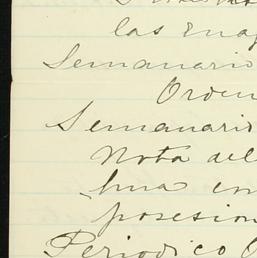 las enag
Semanario
Orden
Semanario
Nota del
hua en
posesion
Periodico O